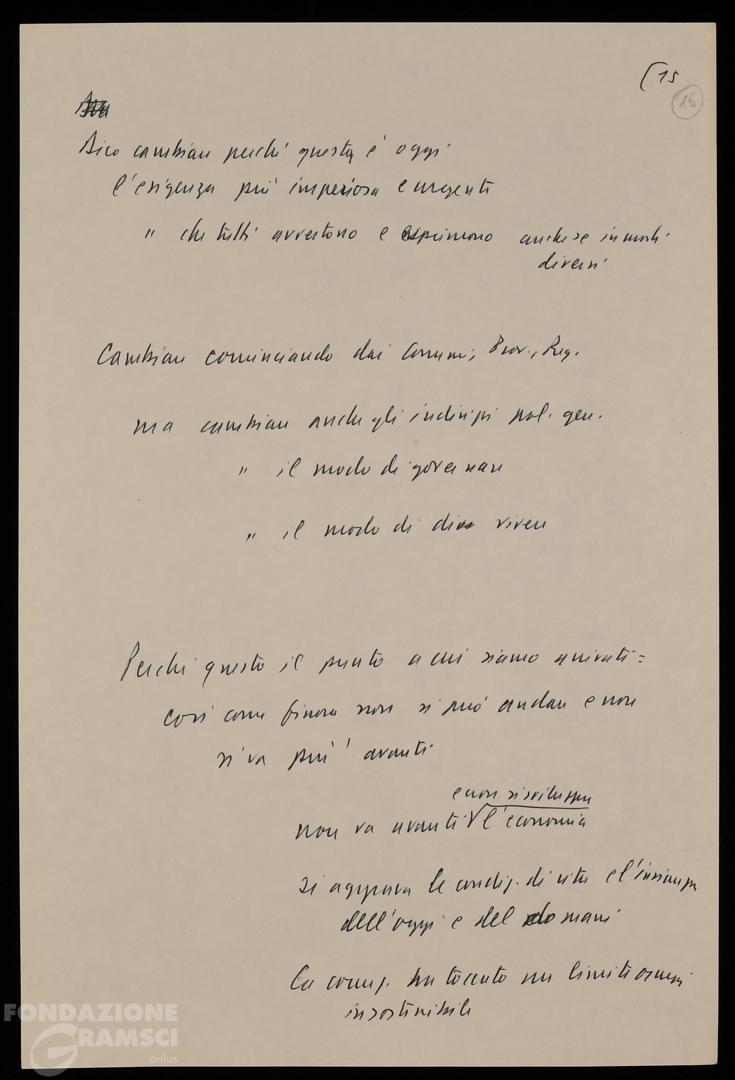 (15
16
Dico cambiare perché questa è oggi
l'esigenza più imperiosa e urgente
" che tutti avvertono e esprimono anche se in modi
diversi
Cambiare cominciando dai Comuni, Prov., Reg.
ma cambiare anche gli indirizzi pol. gen.
" il modo di governare
" il modo di vivere
Perché questo il punto a cui siamo arrivati =
così come finora non si può andare e non
si va più avanti
e non si sviluppa
non va avanti l'economia
si aggrava le condiz. di vita e l'insicurezza
dell'oggi e del domani
La corruz. ha toccato un limite ormai
insostenibile
FONDAZIONE
GRAMSCI
onlus